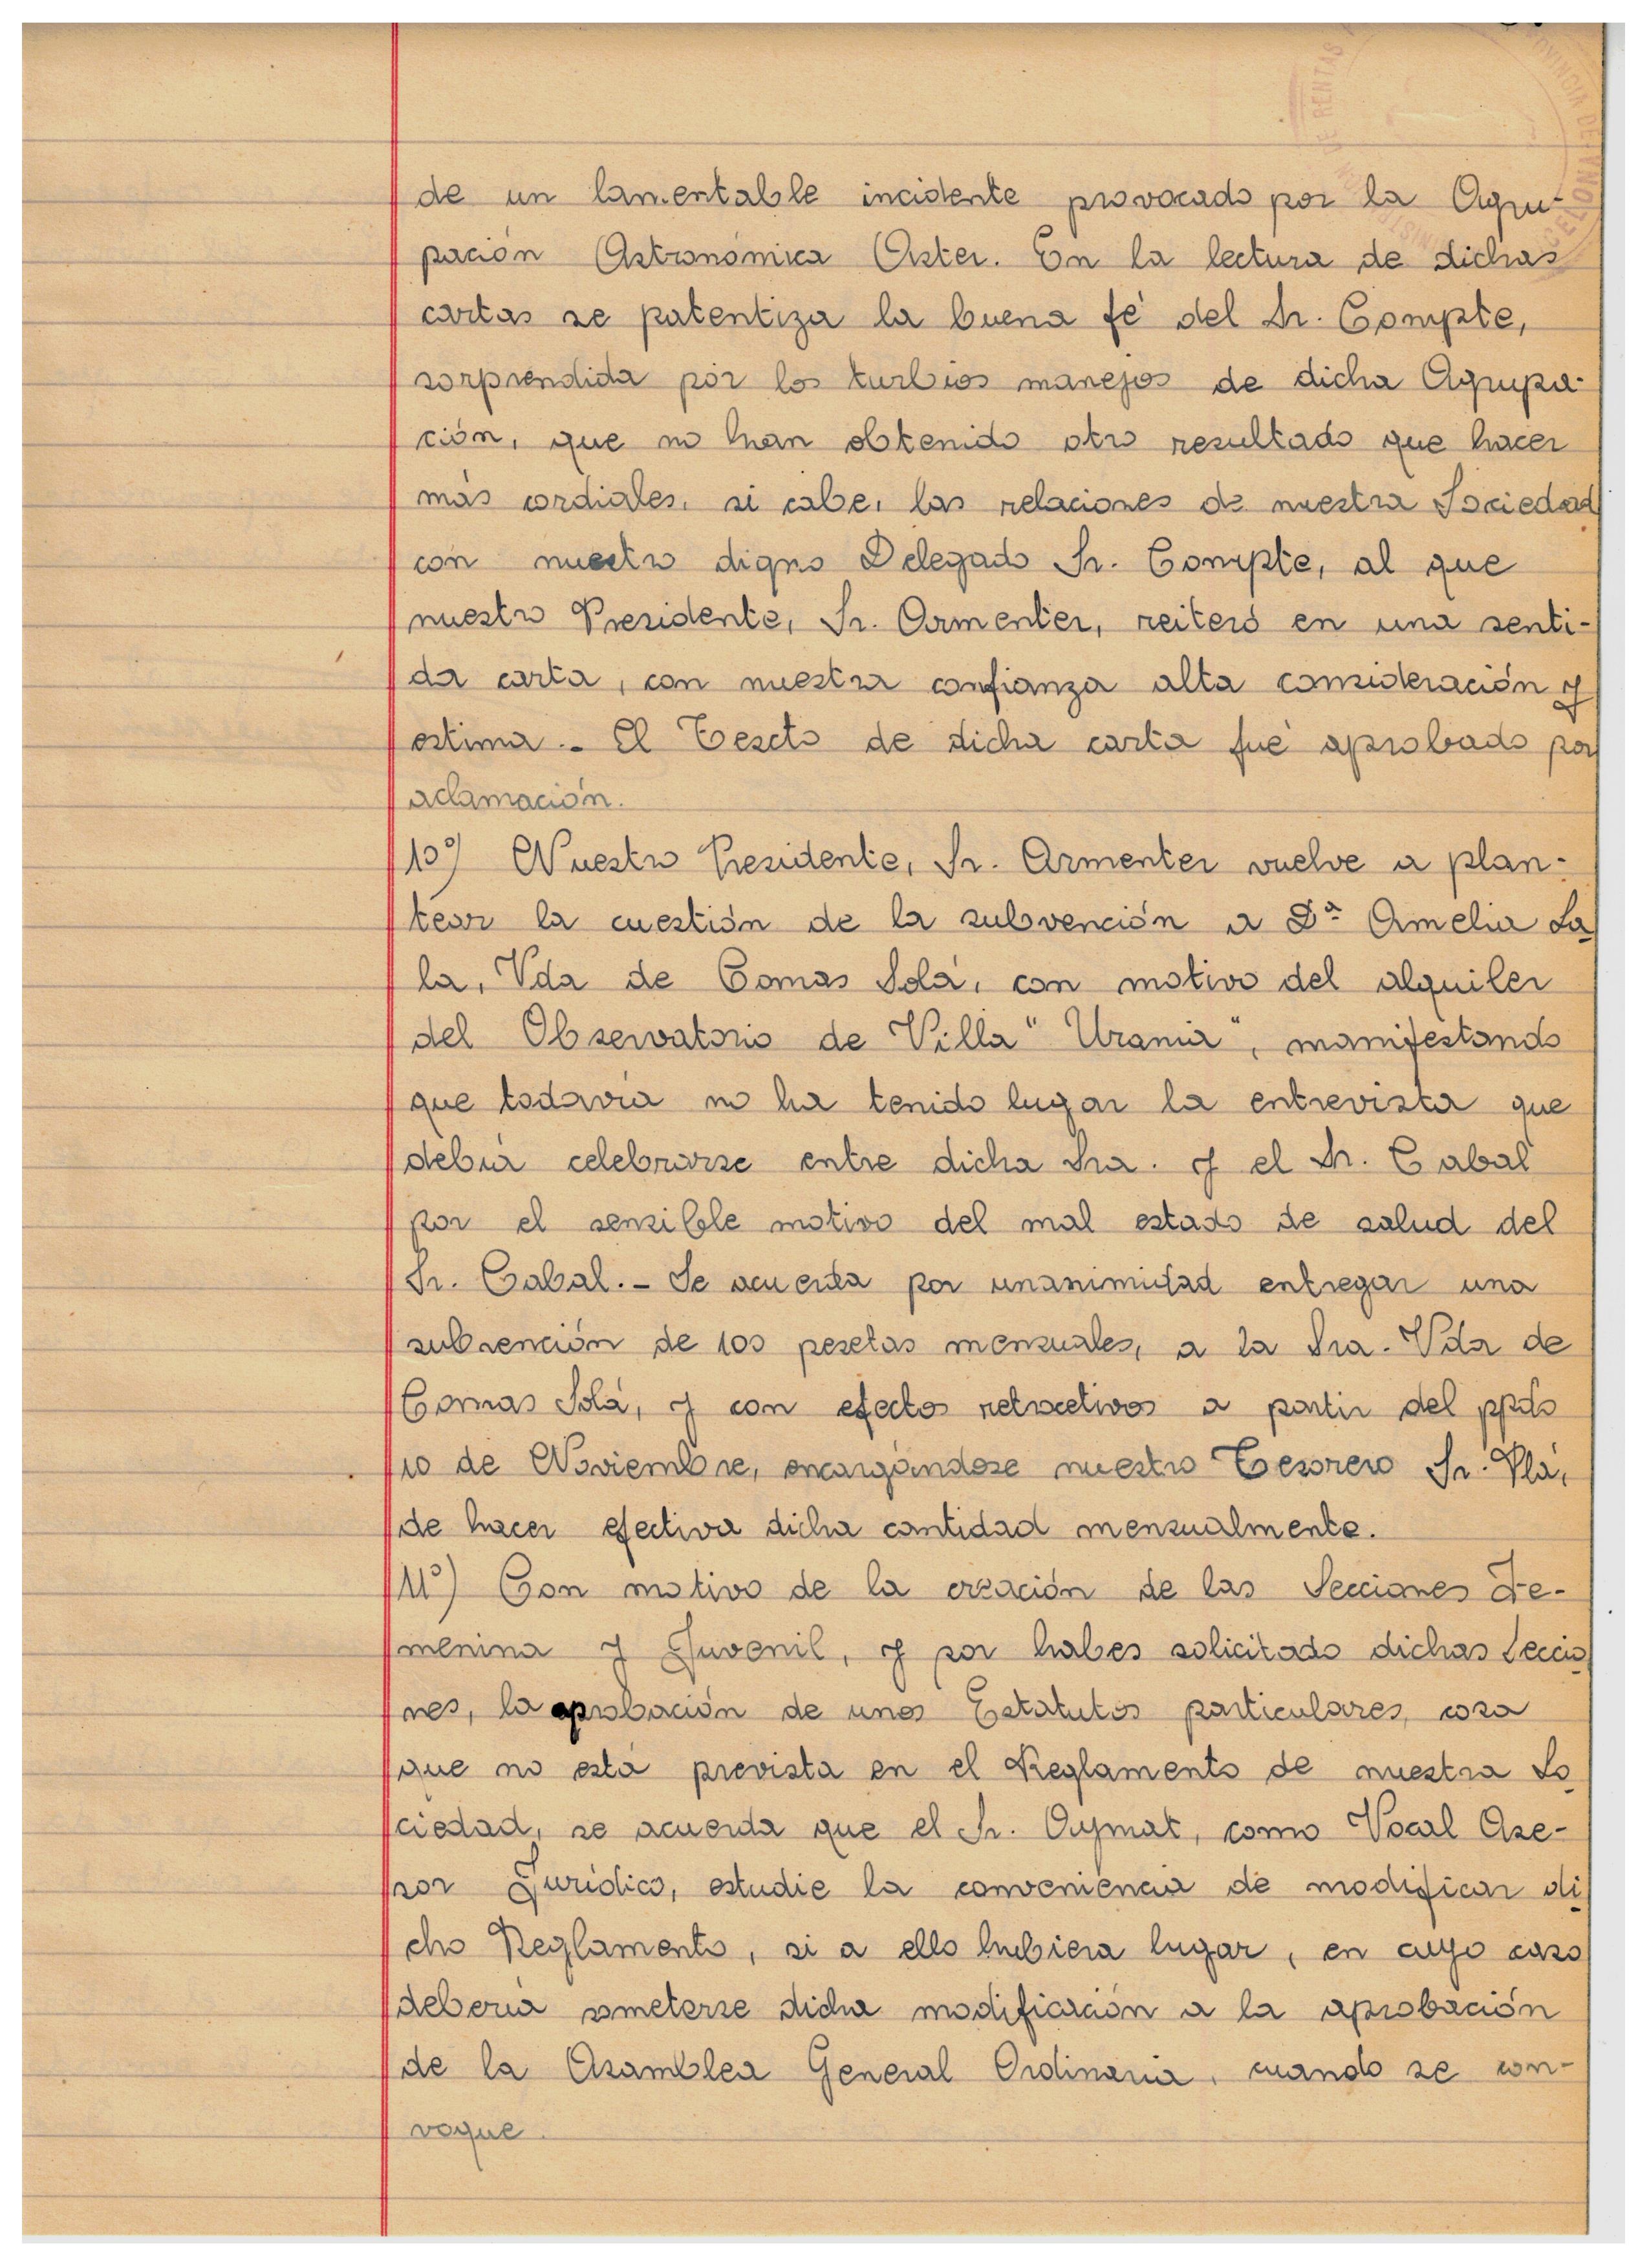 de un lamentable incidente provocado por la Agru-
pación Astronómica Aster. En la lectura de dichas
cartas se patentiza la buena fé del Sr. Compte,
sorprendida por los turbios manejos de dicha Agrupa-
ción, que no han obtenido otro resultado que hacer
más cordiales, si cabe, las relaciones de nuestra Sociedad
con nuestro digno Delegado Sr. Compte, al que
nuestro Presidente, Sr. Armenter, reiteró en una senti-
da carta, con nuestra confianza alta consideración y
estima.- El Tescto de dicha carta fué aprobado por
aclamación.
10º) Nuestro Presidente, Sr. Armenter vuelve a plan-
tear la cuestión de la subvención a Dª Amelia Sa
la, Vda de Comas Solá, con motivo del alquiler
del Observatorio de Villa "Urania", manifestando
que todavía no ha tenido lugar la entrevista que
debía celebrarse entre dicha Sra. y el Sr. Cabal
por el sensible motivo del mal estado de salud del
Sr. Cabal.- Se acuerda por unanimidad entregar una
subvención de 100 pesetas mensuales, a la Sra. Vda de
Comas Solá, y con efectos retroactivos a partir del ppdo
10 de Noviembre, encargándose nuestro Tesorero Sr. Plá,
de hacer efectiva dicha cantidad mensualmente.
11º) Con motivo de la creación de las Secciones Fe-
menina y Juvenil, y por haber solicitado dichas Seccio
nes, la aprobación de unos Estatutos particulares, cosa
que no está prevista en el Reglamento de nuestra So
ciedad, se acuerda que el Sr. Oymat, como Vocal Ase-
sor Jurídico, estudie la conveniencia de modificar di
cho Reglamento, si a ello hubiera lugar, en cuyo caso
debería someterse dicha modificación a la aprobación
de la Asamblea General Ordinaria, cuando se con-
voque.